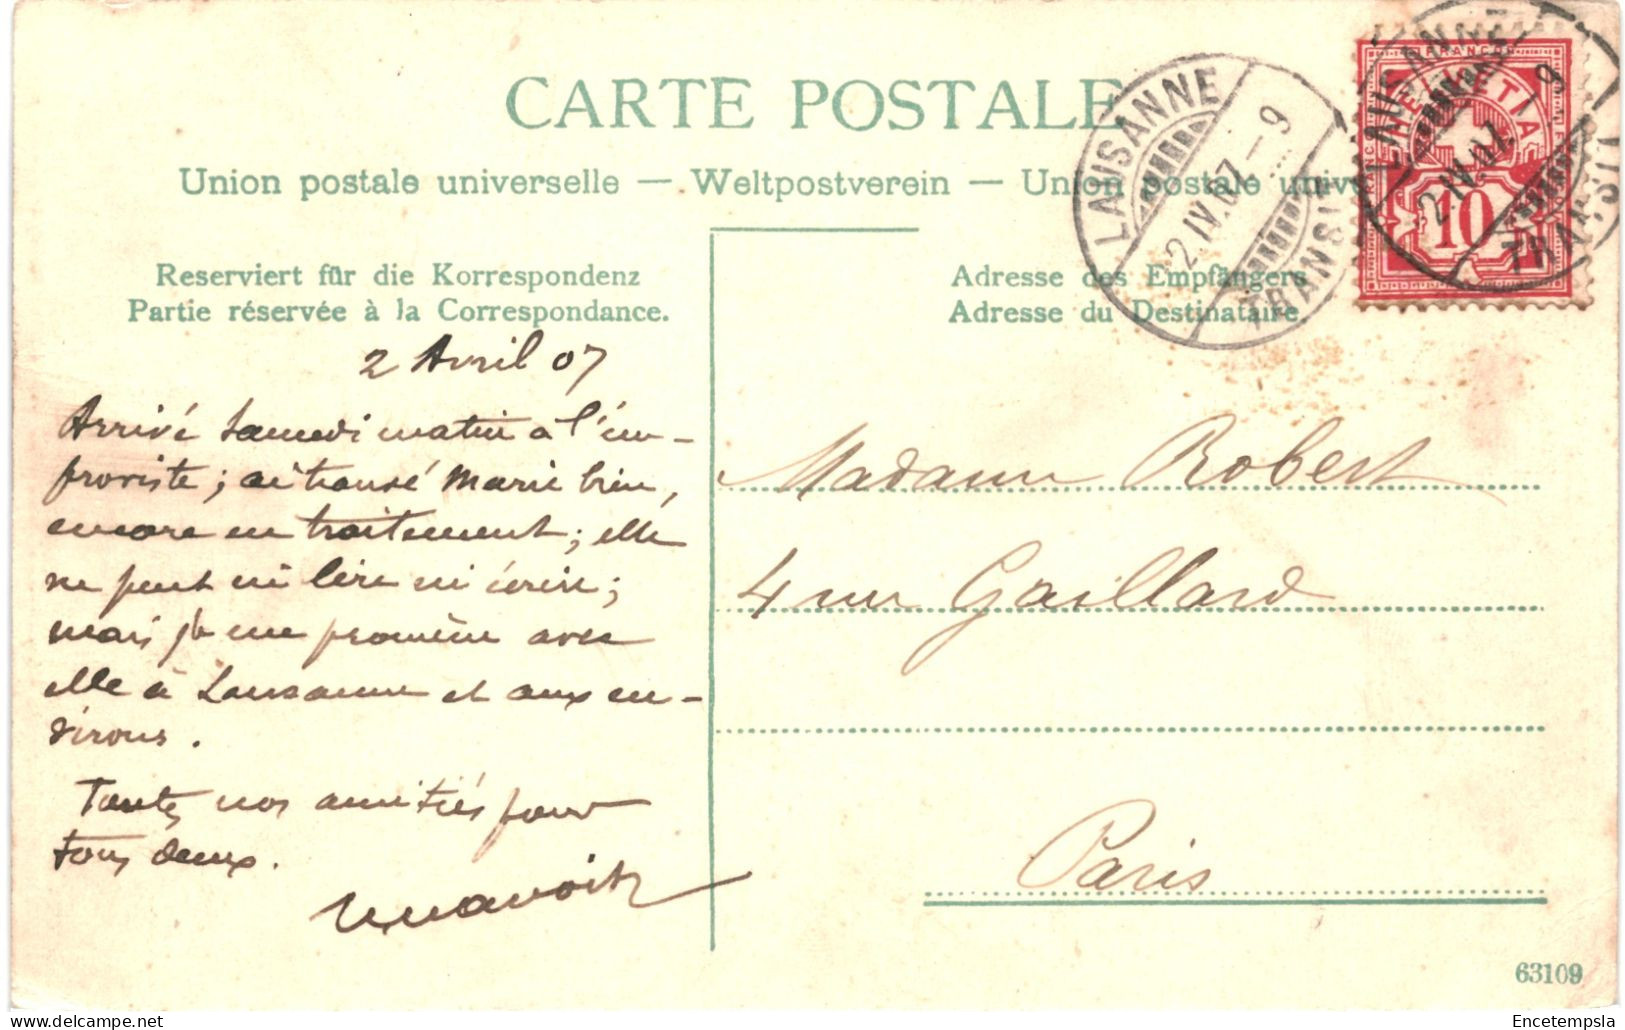 CARTE POSTALE
Union postale universelle — Weltpostverein — Union postale univ
Reserviert für die Korrespondenz
Partie réservée à la Correspondance.
Adresse des Empfängers
Adresse du Destinataire
LAUSANNE
2.IV.07.–9
TRANSIT
FRANCO
HELVETIA
10
LAUSANNE
2.IV.07.–9
TRANSIT
2 Avril 07
Arrivé Samedi matin à l'im-
proviste ; ai trouvé Marie bien,
encore en traitement ; elle
ne peut ni lire ni écrire ;
mais je me promène avec
elle à Lausanne et aux en-
virons.
Toutes nos amitiés pour
tous deux.
Madame Robert
4 rue Gaillard
Paris
63109
Encetempsla